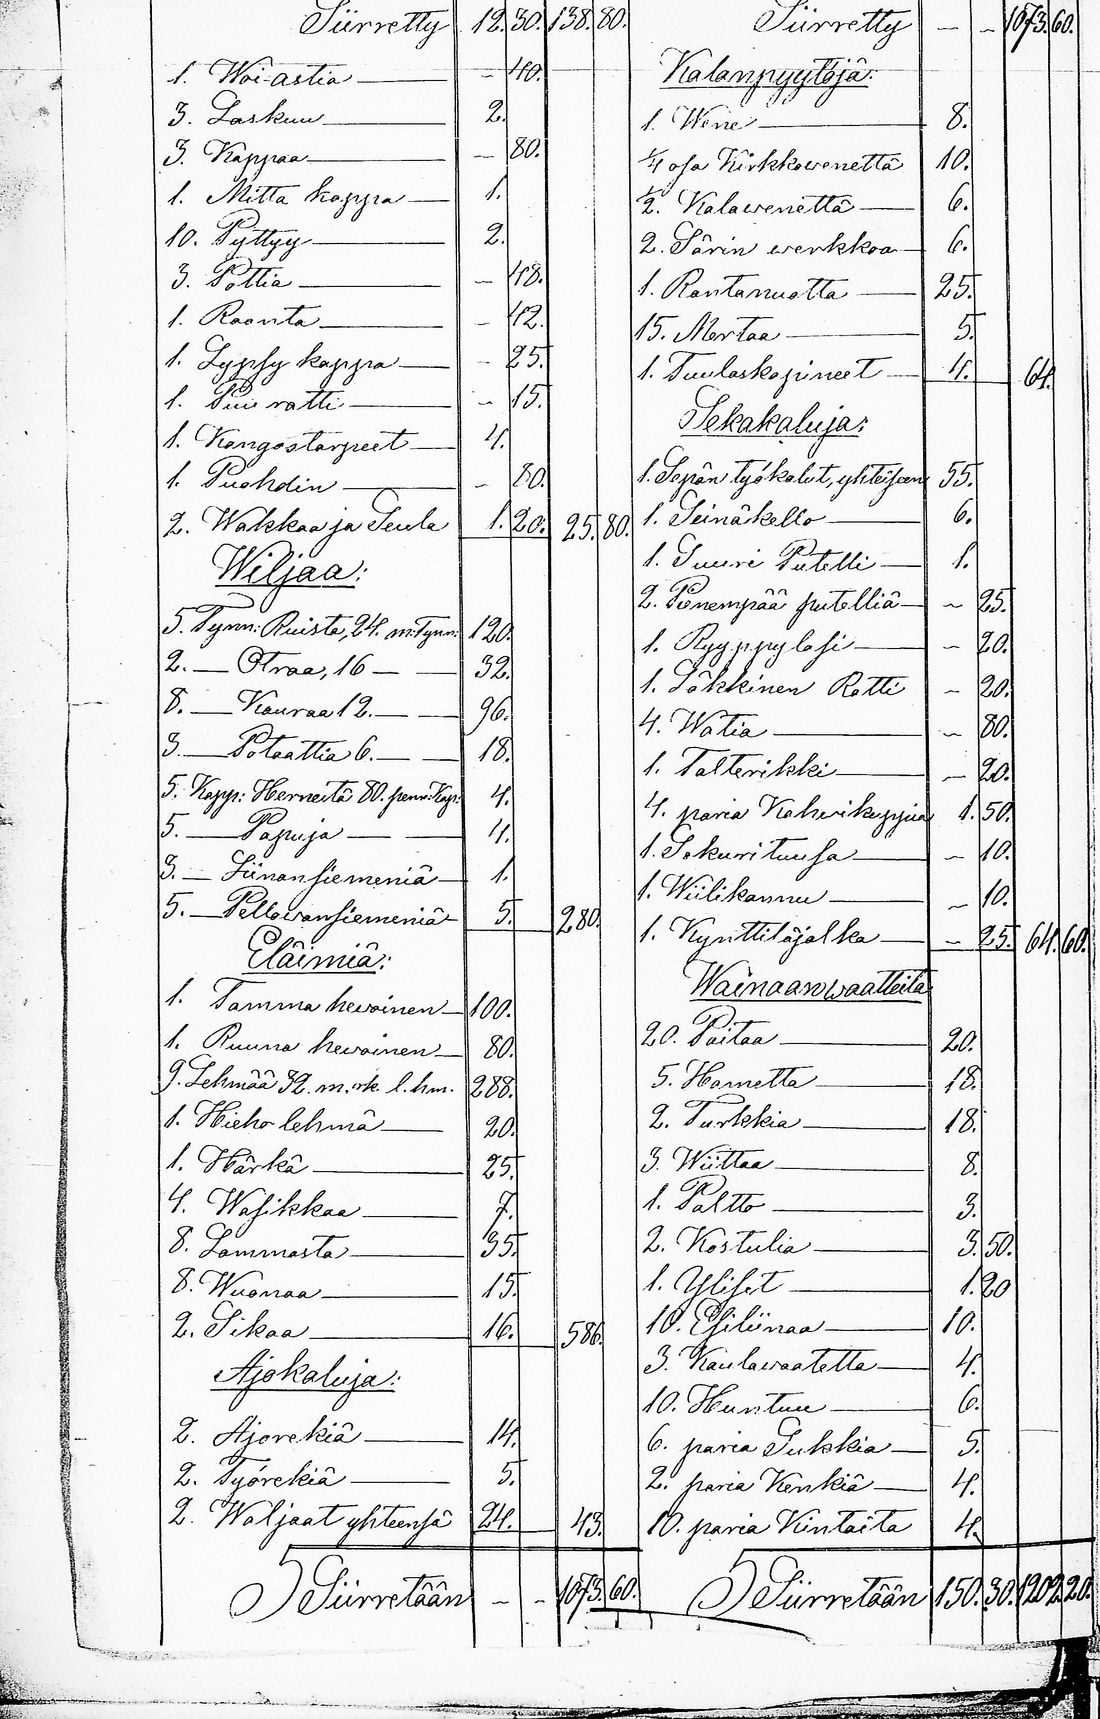 Siirretty 12. 30. 138. 80.
1. Woi-astia — 40.
3. Laskuu 2.
3. Kappaa — 80.
1. Mitta kappa 1.
10. Pyttyy 2.
3. Pottia — 48.
1. Raanta — 42.
1. Lypsy kappa — 25.
1. Puu ratti — 15.
1. Kangastarpeet 4.
1. Puohdin — 80.
2. Wakkaa ja Seula 1. 20. 25. 80.
Wiljaa:
5. Tynn: Ruista, 24. m: Tynn: 120.
2. — Otraa, 16 — — 32.
8. — Kauraa 12. — — 96.
3. — Potaattia 6. — — 18.
5. Kapp: Herneitä 80. penn: Kap: 4.
5. — Papuja — — 4.
3. — Liinansiemeniä 1.
5. — Pellowansiemeniä 5. 280.
Eläimiä:
1. Tamma hewoinen 100.
1. Ruuna hewoinen 80.
9. Lehmää 32. m.rk. l. hm. 288.
1. Hieho lehmä 20.
1. Härkä 25.
4. Wasikkaa 7.
8. Lammasta 35.
8. Wuonaa 15.
2. Sikaa 16. 586.
Ajokaluja:
2. Ajorekiä 14.
2. Työrekiä 5.
2. Waljaat yhteensä 24. 43.
Siirretään — — 1073. 60.
Siirretty — — 1073. 60.
Kalanpyytöjä:
1. Wene 8.
1/4 osa Kirkkowenettä 10.
1/2. Kalawenettä 6.
2. Särin werkkoa 6.
1. Rantanuotta 25.
15. Mertaa 5.
1. Tuulaskapineet 4. 64.
Sekakaluja:
1. Sepän työkalut, yhteiseen 55.
1. Seinäkello 6.
1. Suuri Putelli 1.
2. Pienempää putelliä — 25.
1. Ryyppylasi — 20.
1. Läkkinen Ratti — 20.
4. Watia — 80.
1. Talterikki — 20.
4. paria Kahwikuppia 1. 50.
1. Sokurituusa — 10.
1. Wiilikannu — 10.
1. Kynttiläjalka — 25. 64. 60.
Wainaanwaatteita
20. Paitaa 20.
5. Hametta 18.
2. Turkkia 18.
3. Wiittaa 8.
1. Paltto 3.
2. Kostulia 3. 50.
1. Yliset 1. 20
10. Esiliinaa 10.
3. Kaulawaatetta 4.
10. Huntuu 6.
6. paria Sukkia 5.
2. paria Kenkiä 4.
10. paria Kintaita 4.
Siirretään 150. 30. 1202. 20.